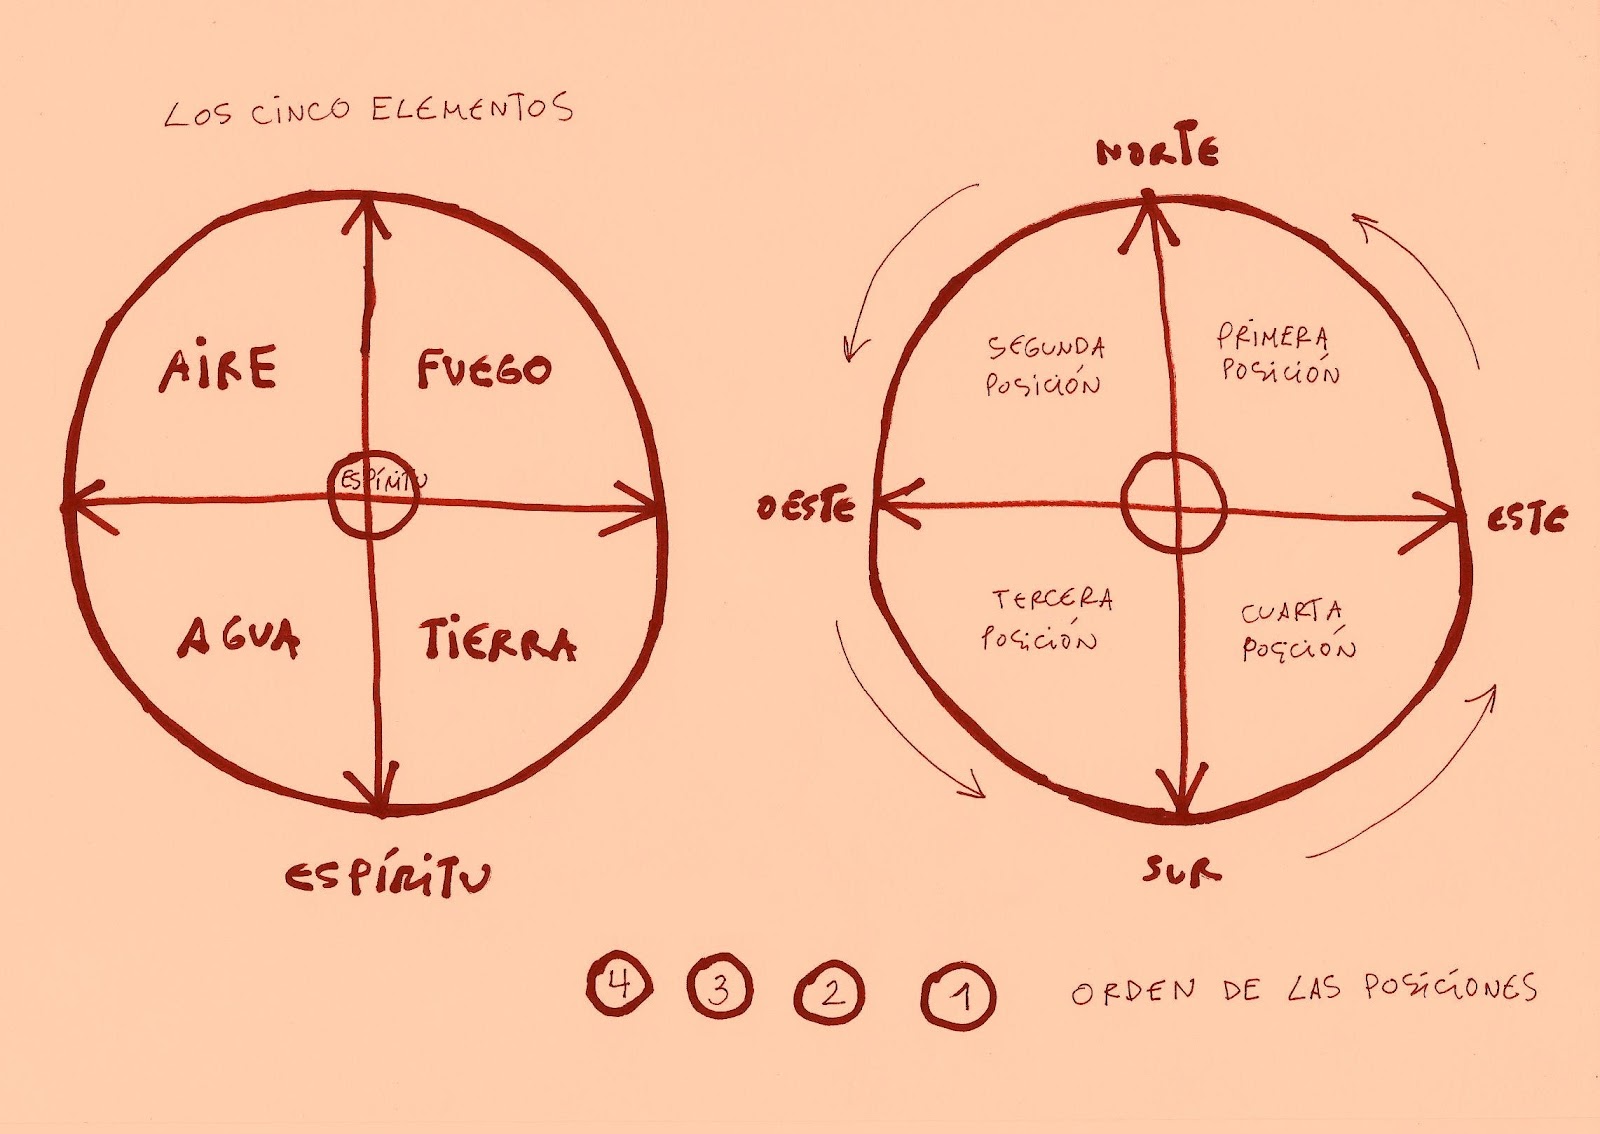 LOS CINCO ELEMENTOS
AIRE
FUEGO
ESPÍRITU
AGUA
TIERRA
ESPÍRITU
NORTE
SEGUNDA
POSICIÓN
PRIMERA
POSICIÓN
OESTE
ESTE
TERCERA
POSICIÓN
CUARTA
POSICIÓN
SUR
4 3 2 1 ORDEN DE LAS POSICIONES